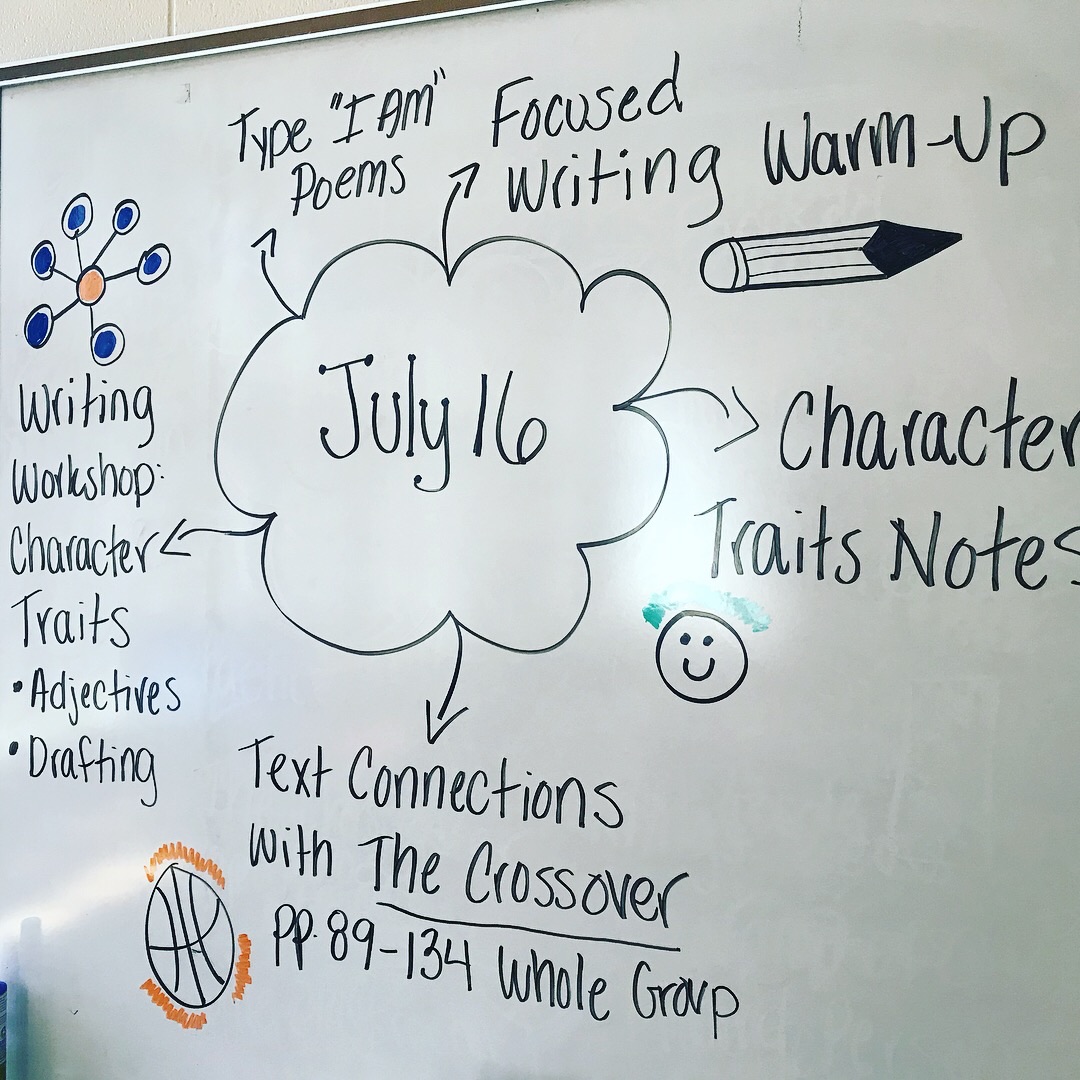 July 16
Type "I AM"
Poems
Focused
Writing Warm-Up
Character
Traits Notes
Text Connections
with The Crossover
pp. 89-134 Whole Group
Writing
Workshop:
Character
Traits
• Adjectives
• Drafting